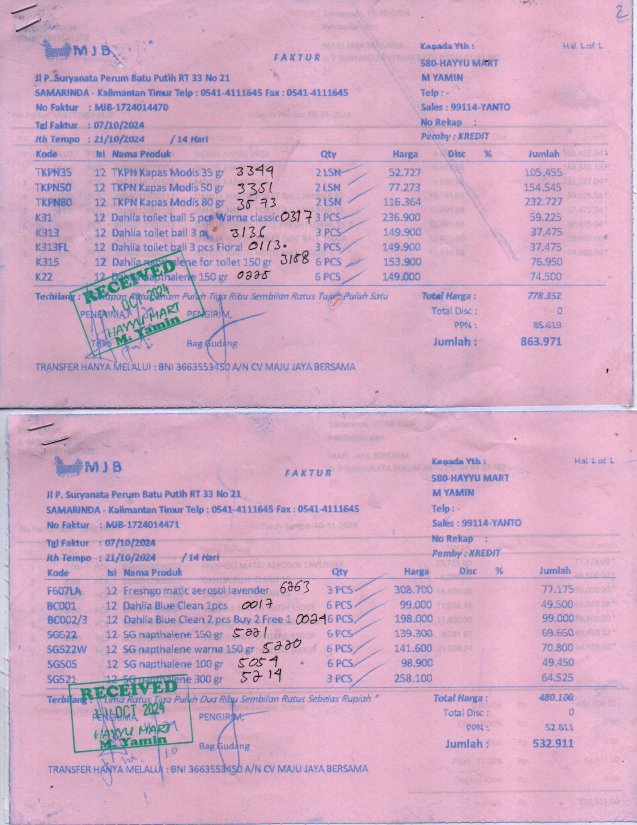 2
MJB
FAKTUR
Kepada Yth :
Hal 1 of 1
580-HAYYU MART
Jl P. Suryanata Perum Batu Putih RT 33 No 21
M YAMIN
SAMARINDA - Kalimantan Timur Telp : 0541-4111645 Fax : 0541-4111645
Telp : -
No Faktur : MJB-1724014470
Sales : 99114-YANTO
Tgl Faktur : 07/10/2024
No Rekap :
Jth Tempo : 21/10/2024 / 14 Hari
Pemby : KREDIT
Kode Isi Nama Produk Qty Harga Disc % Jumlah
TKPN35 12 TKPN Kapas Modis 35 gr 3344 2 LSN 52.727 105.455
TKPN50 12 TKPN Kapas Modis 50 gr 3351 2 LSN 77.273 154.545
TKPN80 12 TKPN Kapas Modis 80 gr 3573 2 LSN 116.364 232.727
K31 12 Dahlia toilet ball 5 pcs Warna classic 0317 3 PCS 236.900 59.225
K313 12 Dahlia toilet ball 3 pc 3136 3 PCS 149.900 37.475
K313FL 12 Dahlia toilet ball 3 pcs Floral 0113 3 PCS 149.900 37.475
K315 12 napthalene for toilet 150 gr 3158 6 PCS 153.900 76.950
K22 12 napthalene 150 gr 0225 6 PCS 149.000 74.500
Terbilang : Enam Puluh Tiga Ribu Sembilan Ratus Tujuh Puluh Satu
Total Harga : 778.352
PENERIMA, PENGIRIM,
Total Disc : 0
PPN : 85.619
Bag.Gudang
Jumlah : 863.971
RECEIVED
OCT 2024
HAYYU MART
M. Yamin
TRANSFER HANYA MELALUI : BNI 3663553450 A/N CV MAJU JAYA BERSAMA
MJB
FAKTUR
Kepada Yth :
Hal 1 of 1
580-HAYYU MART
Jl P. Suryanata Perum Batu Putih RT 33 No 21
M YAMIN
SAMARINDA - Kalimantan Timur Telp : 0541-4111645 Fax : 0541-4111645
Telp : -
No Faktur : MJB-1724014471
Sales : 99114-YANTO
Tgl Faktur : 07/10/2024
No Rekap :
Jth Tempo : 21/10/2024 / 14 Hari
Pemby : KREDIT
Kode Isi Nama Produk Qty Harga Disc % Jumlah
F607LA 12 Freshgo matic aerosol lavender 6263 3 PCS 308.700 77.175
BC001 12 Dahlia Blue Clean 1pcs 0017 6 PCS 99.000 49.500
BC002/3 12 Dahlia Blue Clean 2 pcs Buy 2 Free 1 0024 6 PCS 198.000 99.000
SG522 12 SG napthalene 150 gr 5221 6 PCS 139.300 69.650
SG522W 12 SG napthalene warna 150 gr 5220 6 PCS 141.600 70.800
SG505 12 SG napthalene 100 gr 5054 6 PCS 98.900 49.450
SG521 12 SG napthalene 300 gr 5214 3 PCS 258.100 64.525
Terbilang : Lima Ratus Tiga Puluh Dua Ribu Sembilan Ratus Sebelas Rupiah *
Total Harga : 480.100
PENERIMA, PENGIRIM,
Total Disc : 0
PPN : 52.811
Bag.Gudang
Jumlah : 532.911
RECEIVED
11 OCT 2024
HAYYU MART
M. Yamin
TRANSFER HANYA MELALUI : BNI 3663553450 A/N CV MAJU JAYA BERSAMA